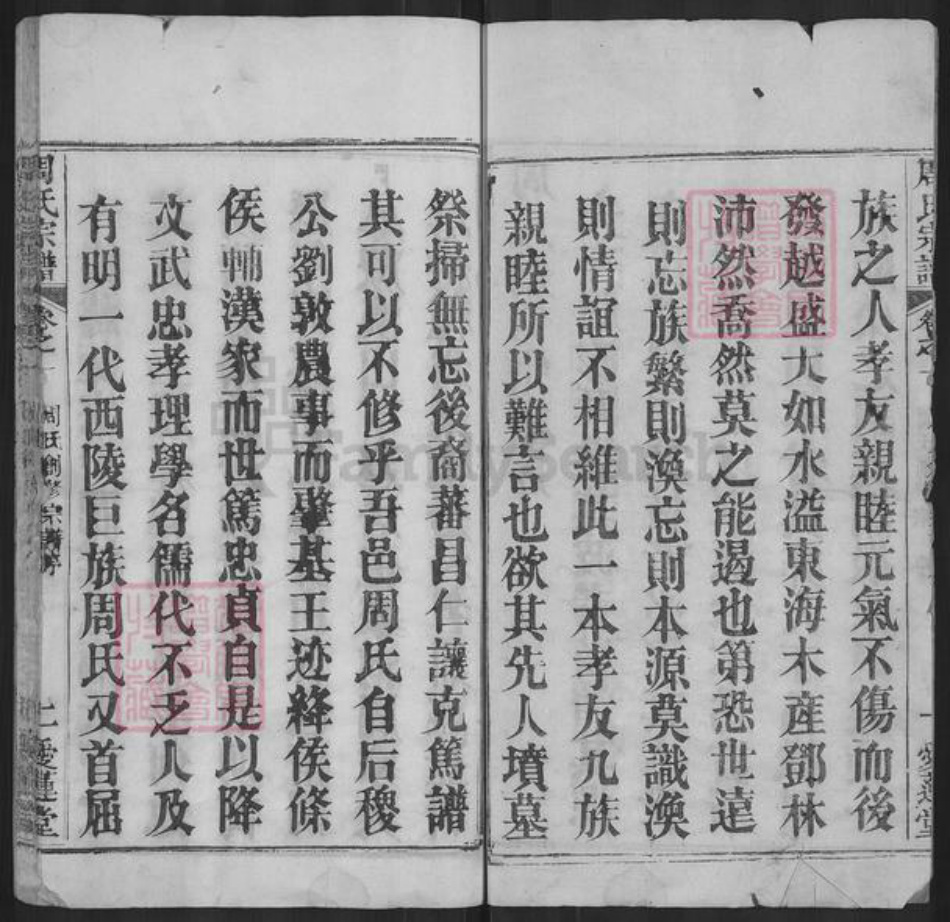 族之人孝友親睦元氣不傷而後
發越盛大如水溢東海木産鄧林
沛然喬然莫之能遏也第恐世遠
則忘族繁則渙忘則本源莫識渙
則情誼不相維此一本孝友九族
親睦所以難言也欲其先人墳墓
祭掃無忘後裔蕃昌仁讓克篤譜
其可以不修乎吾邑周氏自后稷
公劉敦農事而肇基王迹絳侯條
侯輔漢家而世篤忠貞自是以降
文武忠孝理學名儒代不乏人及
有明一代西陵巨族周氏又首屈
周氏宗譜
卷之
周氏創修宗譜序
愛蓮堂
FamilySearch